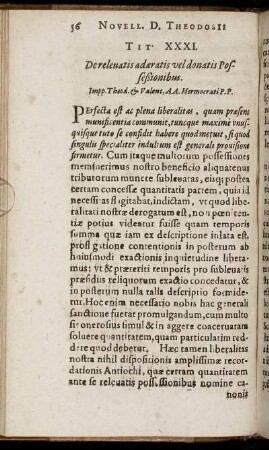 56 NOVELL. D. THEODOSII
TIT. XXXI.
De releuatis adæratis vel donatis Pos-
sessionibus.
Impp. Theod. & Valent. A A. Hermocrati P. P.
PErfecta est ac plena liberalitas, quam præsens
munificentia communit, tuncque maxime vnus-
quisque tuto se confidit habere quod metuit, si quod
singulis specialiter indultum est generali prouisione
firmetur. Cum itaque multorum possessiones
meminerimus nostro beneficio aliquatenus
tributorum munere subleuatas, eisq; postea
certam concessæ quantitatis partem, quia id
necessitas flagitabat, indictam, vt quod libe-
ralitati nostræ derogatum est, non pœniten-
tiæ potius videatur fuisse quam temporis
summa quæ iam ex descriptione inlata est,
pro segatione contentionis in posterum ab
huiusmodi exactionis inquietudine libera-
mus: vt & præteriti temporis pro subleuatis
prædiis reliquorum exactio concedatur, &
in posterum nulla talis descriptio formide-
tur. Hoc enim necessatio nobis hac generali
sanctione fuerat promulgandum, cum mul-
to sit onerosius simul & in aggere coaceruatam
soluere quantitatem, quam particulatim red-
dere quod debetur. Hæc tamen liberalitas
nostra nihil dispositionis amplissimæ recor-
dationis Antiochi, quæ certam quantitatem
ante se releuatis possessionibus nomine ca-
nonis